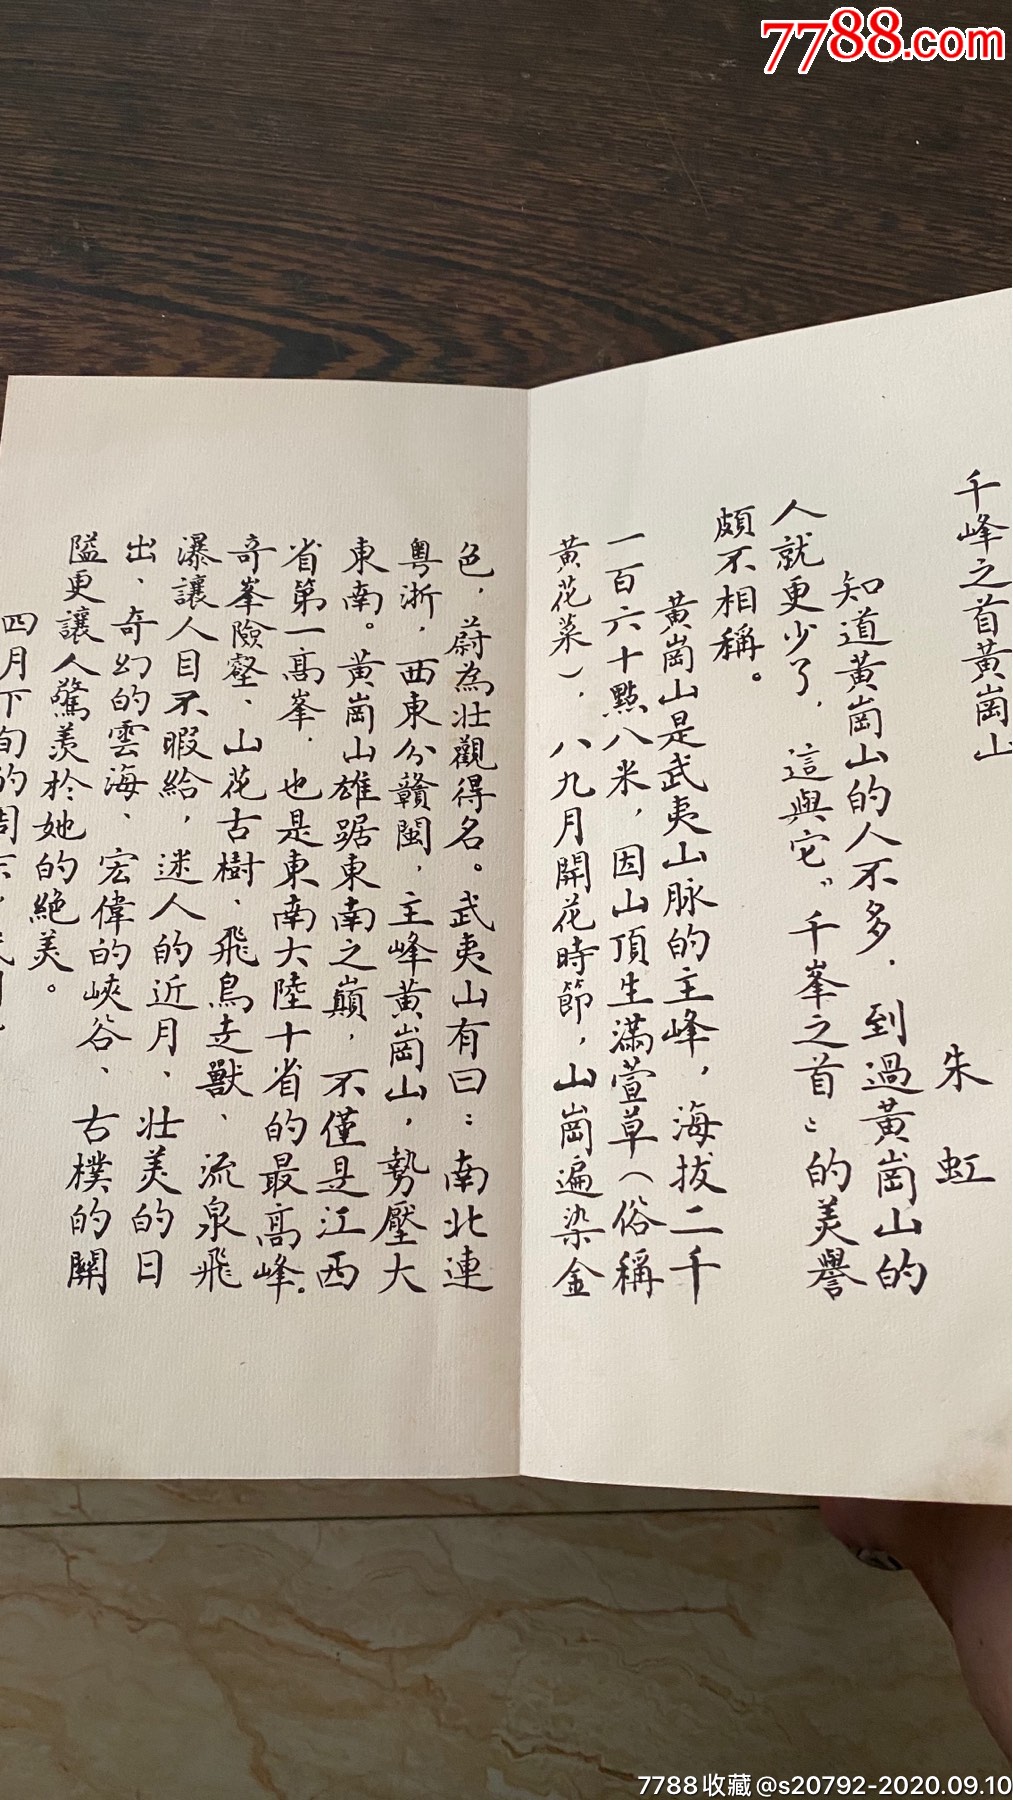 7788.com
千峰之首黃崗山
朱 虹
知道黃崗山的人不多，到過黃崗山的
人就更少了，這與它“千峯之首”的美譽
頗不相稱。
黃崗山是武夷山脉的主峰，海拔二千
一百六十點八米，因山頂生滿萱草（俗稱
黃花菜），八九月開花時節，山崗遍染金
色，蔚為壯觀得名。武夷山有曰：南北連
粵浙，西東分贛閩，主峰黃崗山，勢壓大
東南。黃崗山雄踞東南之巔，不僅是江西
省第一高峯，也是東南大陸十省的最高峰。
奇峯險壑、山花古樹、飛鳥走獸、流泉飛
瀑讓人目不暇給，迷人的近月、壯美的日
出、奇幻的雲海、宏偉的峽谷、古樸的關
隘更讓人驚羨於她的絕美。
四月下旬的周末，我
7788收藏@s20792-2020.09.10